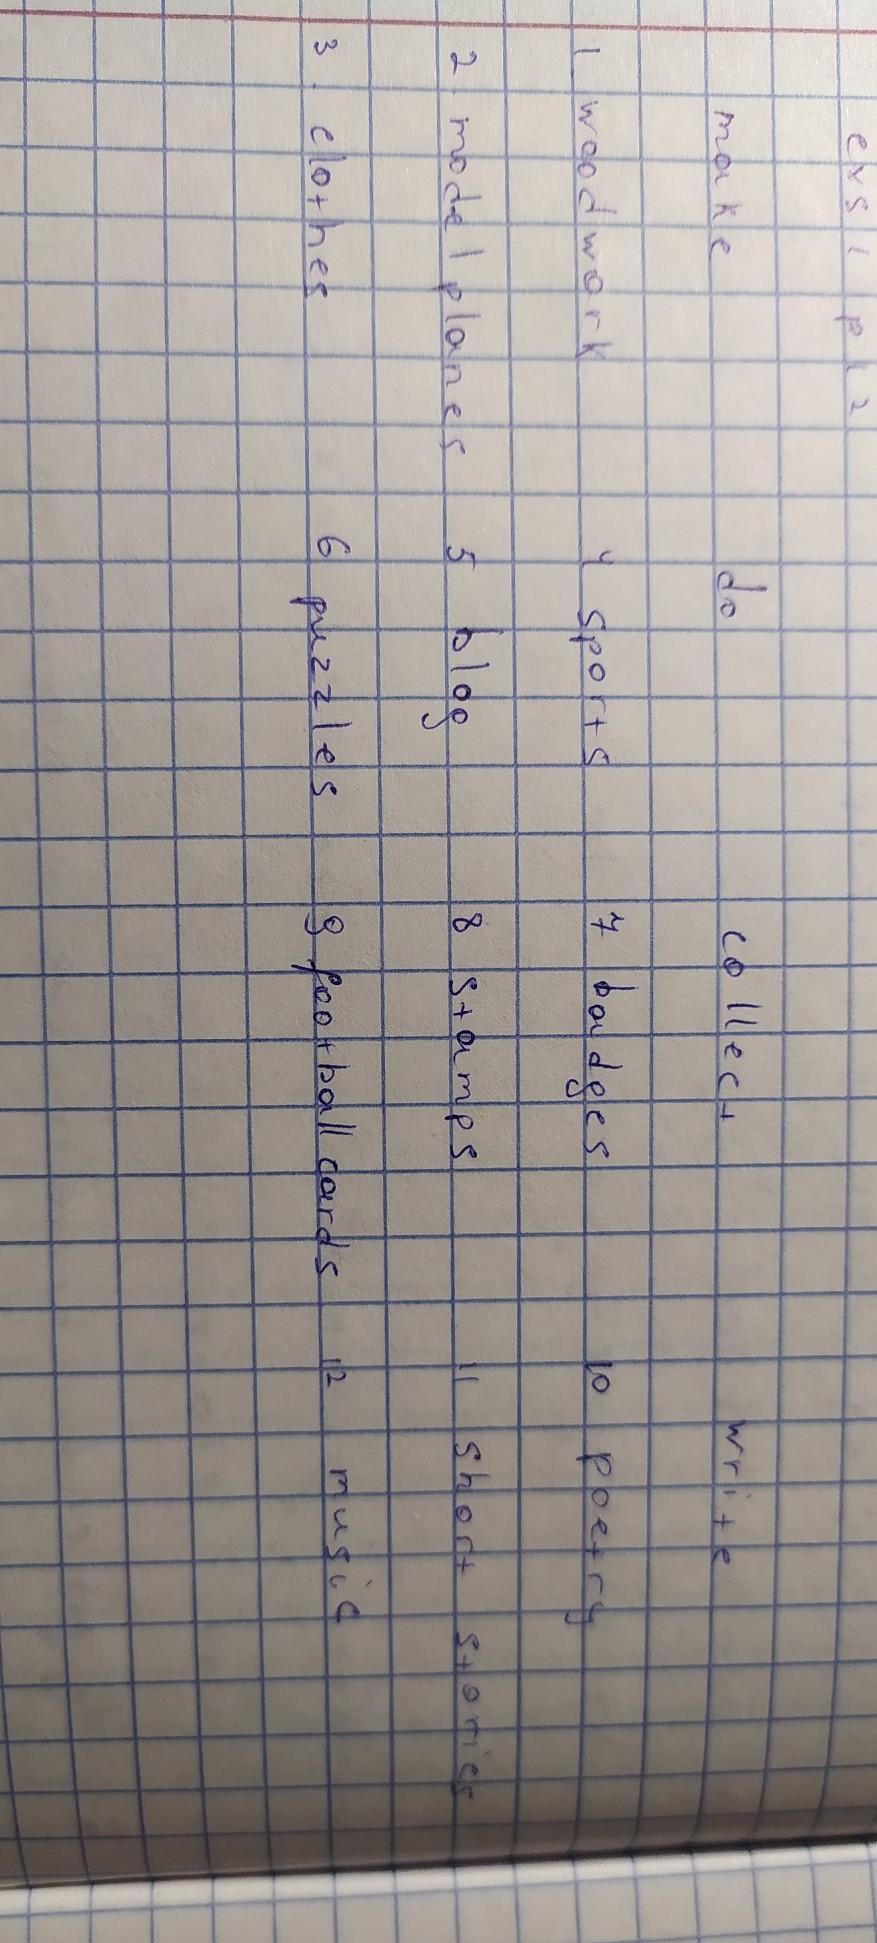 exs 1 p 12
make do collect write
1 woodwork 4 sports 7 badges 10 poetry
2. model planes 5 blog 8 stamps 11 short stories
3. clothes 6 puzzles 9 football cards 12 music